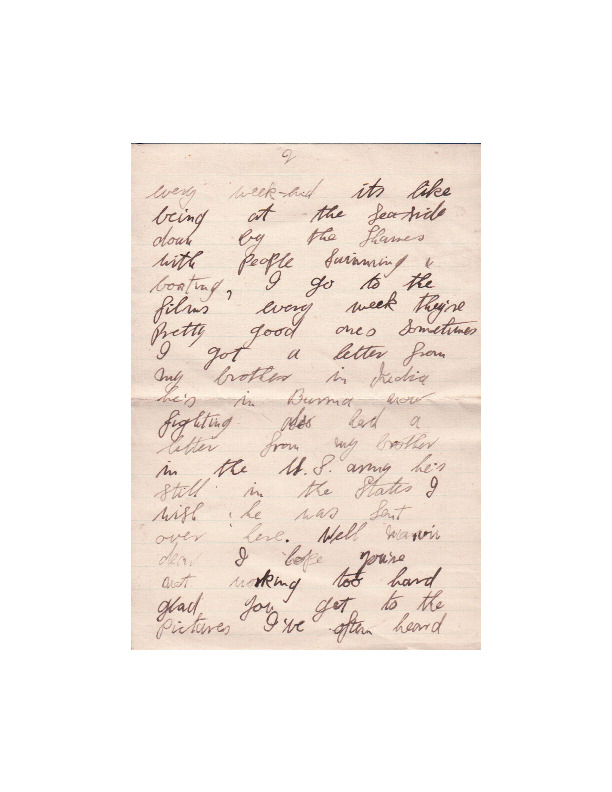 2
every week-end its like
being at the Seaside
down by the Thames
with people Swimming &
boating, I go to the
films every week they're
Pretty good ones Sometimes
I got a letter from
my brother in India
he's in Burma now
fighting also had a
letter from my brother
in the U.S. army he's
still in the States I
wish he was Sent
over here. Well
dear I hope you're
not working too hard
glad you get to the
Pictures I've often heard